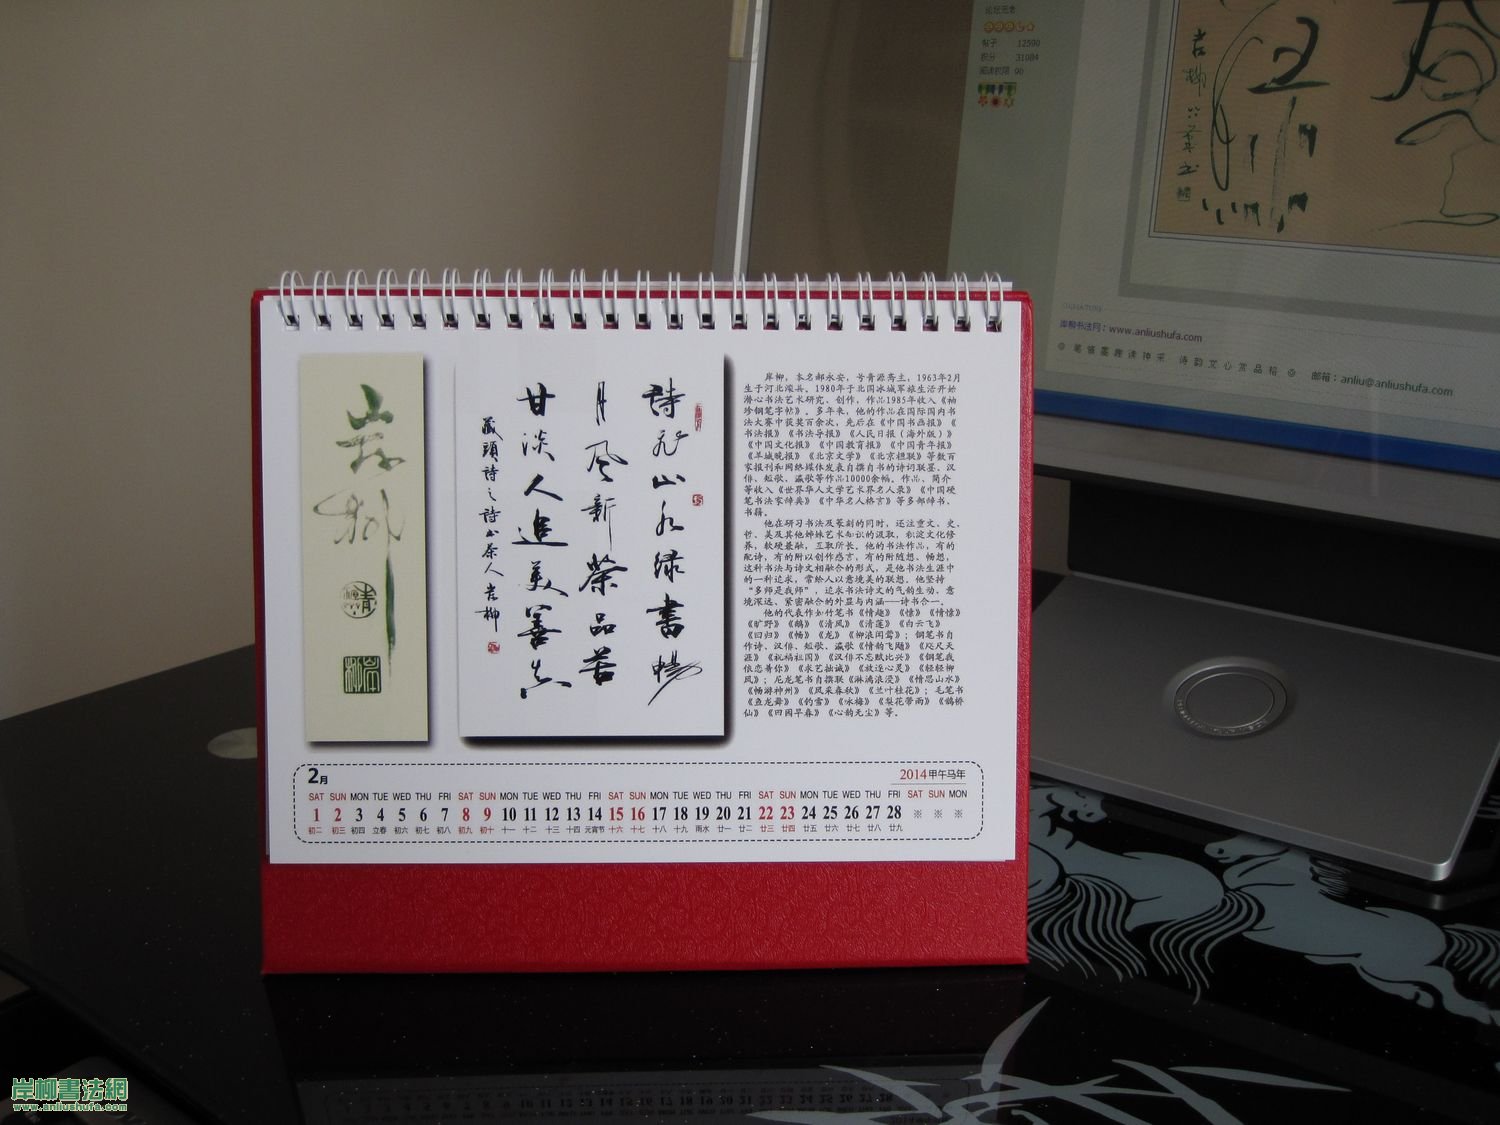 论坛元老
帖子 12590
积分 31084
阅读权限 90
岸柳
SIGNATURE
岸柳书法网：www.anliushufa.com
◎ 笔省墨趣读神采 诗韵文心赏品格 ◎ 邮箱：anliu@anliushufa.com
岸柳
青
岸柳
詩和山水绿書暢
月风新荣品茗
甘淡人追美善真
藏頭詩之詩书茶人 岸柳
岸柳，本名郝永安，号青源斋主，1963年2月
生于河北深县。1980年于北国冰城军旅生活开始
潜心书法艺术研究、创作，作品1985年收入《袖
珍钢笔字帖》。多年来，他的作品在国际国内书
法大赛中获奖百余次，先后在《中国书画报》《
书法报》《书法导报》《人民日报（海外版）》
《中国文化报》《中国教育报》《中国青年报》
《羊城晚报》《北京文学》《北京楹联》等数百
家报刊和网络媒体发表自撰自书的诗词联墨、汉
俳、短歌、瀛歌等作品10000余幅。作品、简介
等收入《世界华人文学艺术界名人录》《中国硬
笔书法家辞典》《中华名人格言》等多部辞书、
书籍。
他在研习书法及篆刻的同时，还注重文、史、
哲、美及其他姊妹艺术知识的汲取，积淀文化修
养，软硬兼融，互取所长。他的书法作品，有的
配诗，有的附以创作感言，有的附随想、畅想，
这种书法与诗文相融合的形式，是他书法生涯中
的一种追求，常给人以意境美的联想。他坚持
“多师是我师”，追求书法诗文的气韵生动、意
境深远、紧密融合的外显与内涵——诗书合一。
他的代表作如竹笔书《情趣》《憬》《情憬》
《旷野》《鹤》《清风》《清莲》《白云飞》
《回归》《畅》《龙》《柳浪闻莺》；钢笔书自
作诗、汉俳、短歌、瀛歌《情韵飞飏》《咫尺天
涯》《祝福祖国》《汉俳不忘赋比兴》《钢笔我
依恋着你》《求艺拙诚》《放逐心灵》《轻轻柳
风》；尼龙笔书自撰联《淋漓浪漫》《情思山水》
《畅游神州》《风采春秋》《兰叶桂花》；毛笔书
《鱼龙舞》《钓雪》《咏梅》《梨花带雨》《鹊桥
仙》《田园早春》《心韵无尘》等。
2月
2014甲午马年
SAT SUN MON TUE WED THU FRI SAT SUN MON TUE WED THU FRI SAT SUN MON TUE WED THU FRI SAT SUN MON TUE WED THU FRI SAT SUN MON
1 2 3 4 5 6 7 8 9 10 11 12 13 14 15 16 17 18 19 20 21 22 23 24 25 26 27 28 ※ ※ ※
初二 初三 初四 立春 初六 初七 初八 初九 初十 十一 十二 十三 十四 元宵节 十六 十七 十八 十九 雨水 廿一 廿二 廿三 廿四 廿五 廿六 廿七 廿八 廿九
岸柳書法網
www.anliushufa.com